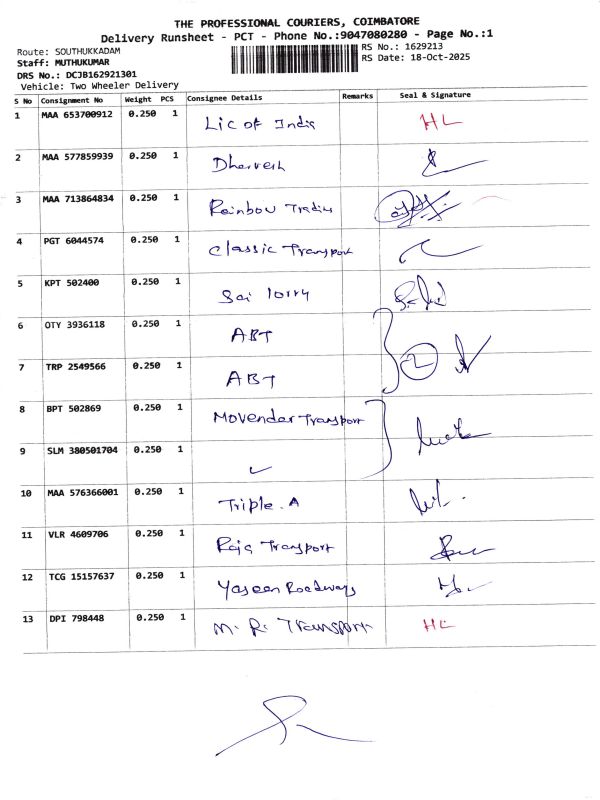 THE PROFESSIONAL COURIERS, COIMBATORE
Delivery Runsheet - PCT - Phone No.:9047080280 - Page No.:1
Route: SOUTHUKKADAM
RS No.: 1629213
Staff: MUTHUKUMAR
RS Date: 18-Oct-2025
DRS No.: DCJB162921301
Vehicle: Two Wheeler Delivery
S No Consignment No Weight PCS Consignee Details Remarks Seal & Signature
1 MAA 653700912 0.250 1 Lic of India HL
2 MAA 577859939 0.250 1 Dharvesh
3 MAA 713864834 0.250 1 Rainbow Trading
4 PGT 6044574 0.250 1 Classic Transport
5 KPT 502400 0.250 1 Sai lorry
6 OTY 3936118 0.250 1 ABT
7 TRP 2549566 0.250 1 ABT
8 BPT 502869 0.250 1 Movendar Transport
9 SLM 380501704 0.250 1 ✓
10 MAA 576366001 0.250 1 Triple.A
11 VLR 4609706 0.250 1 Raja Transport
12 TCG 15157637 0.250 1 Yaseen Roadways
13 DPI 798448 0.250 1 M.R. Transport HL